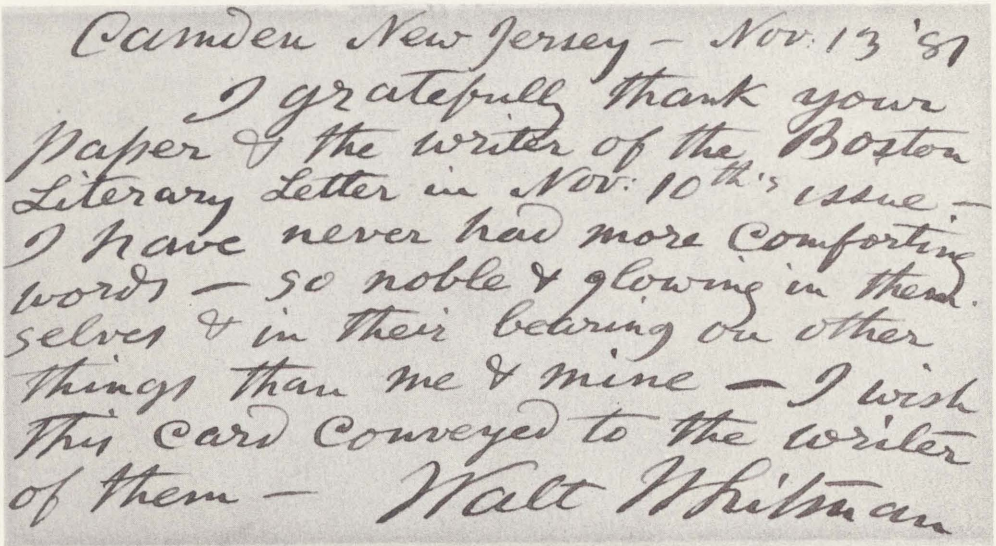 Camden New Jersey – Nov: 13 '81
I gratefully thank your
paper & the writer of the Boston
Literary Letter in Nov: 10th's issue –
I have never had more comforting
words – so noble & glowing in them-
selves & in their bearing on other
things than me & mine – I wish
this card conveyed to the writer
of them – Walt Whitman